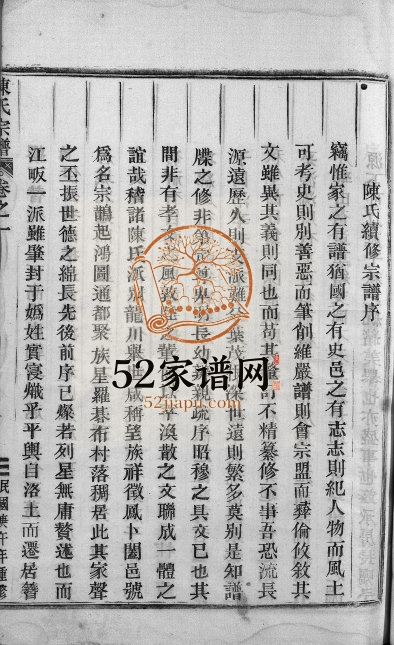 陳氏續修宗譜序
竊惟家之有譜猶國之有史邑之有志志則紀人物而風土
可考史則别善惡而筆削維嚴譜則會宗盟而彛倫攸敘其
文雖異其義則同也而苟其 訂不精纂修不事吾恐流長
源遠歷久則 派難 葉茂 榮世遠則繁多莫别是知譜
牒之修非第 尊卑 長幼 親疏序昭穆之具文已也其
間非有孝 風敦 渙散之文聯成一體之
誼哉稽諸陳氏派别龍川 咸稱望族祥徵鳳卜閭邑號
爲名宗鵲起鴻圖通都聚族星羅碁布村落稠居此其家聲
之丕振世德之綿長先後前序已燦若列星無庸贅述也而
江畈一派雖肇封于嬀姓實寖熾乎平輿自洛土而遷居簪
陳氏宗譜
卷之一
民國庚午年重修
52家谱网
52jiapu.com